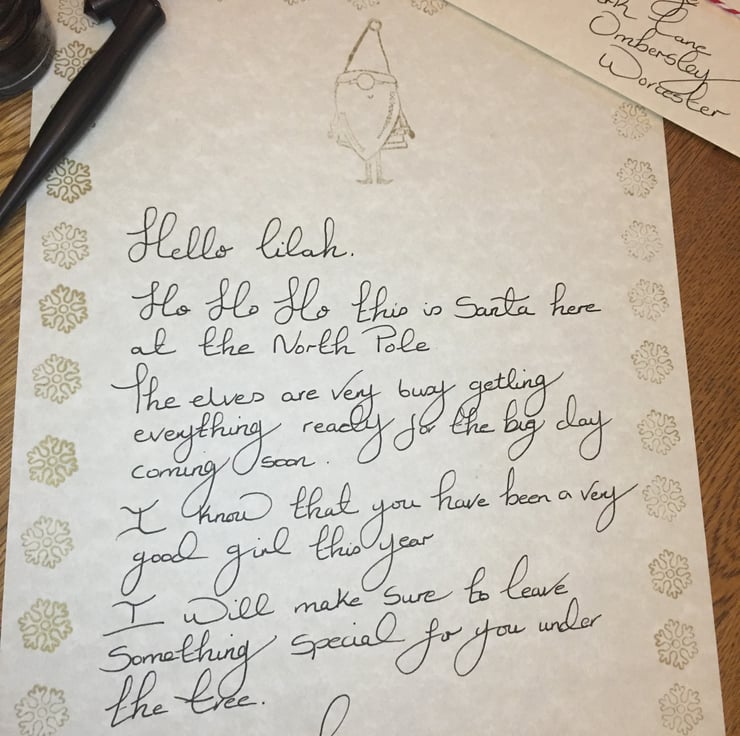 Lane
Ombersley
Worcester
Hello lilah.
Ho Ho Ho this is Santa here
at the North Pole
The elves are very busy getting
everything ready for the big day
coming soon.
I know that you have been a very
good girl this year
I will make sure to leave
Something special for you under
the tree.